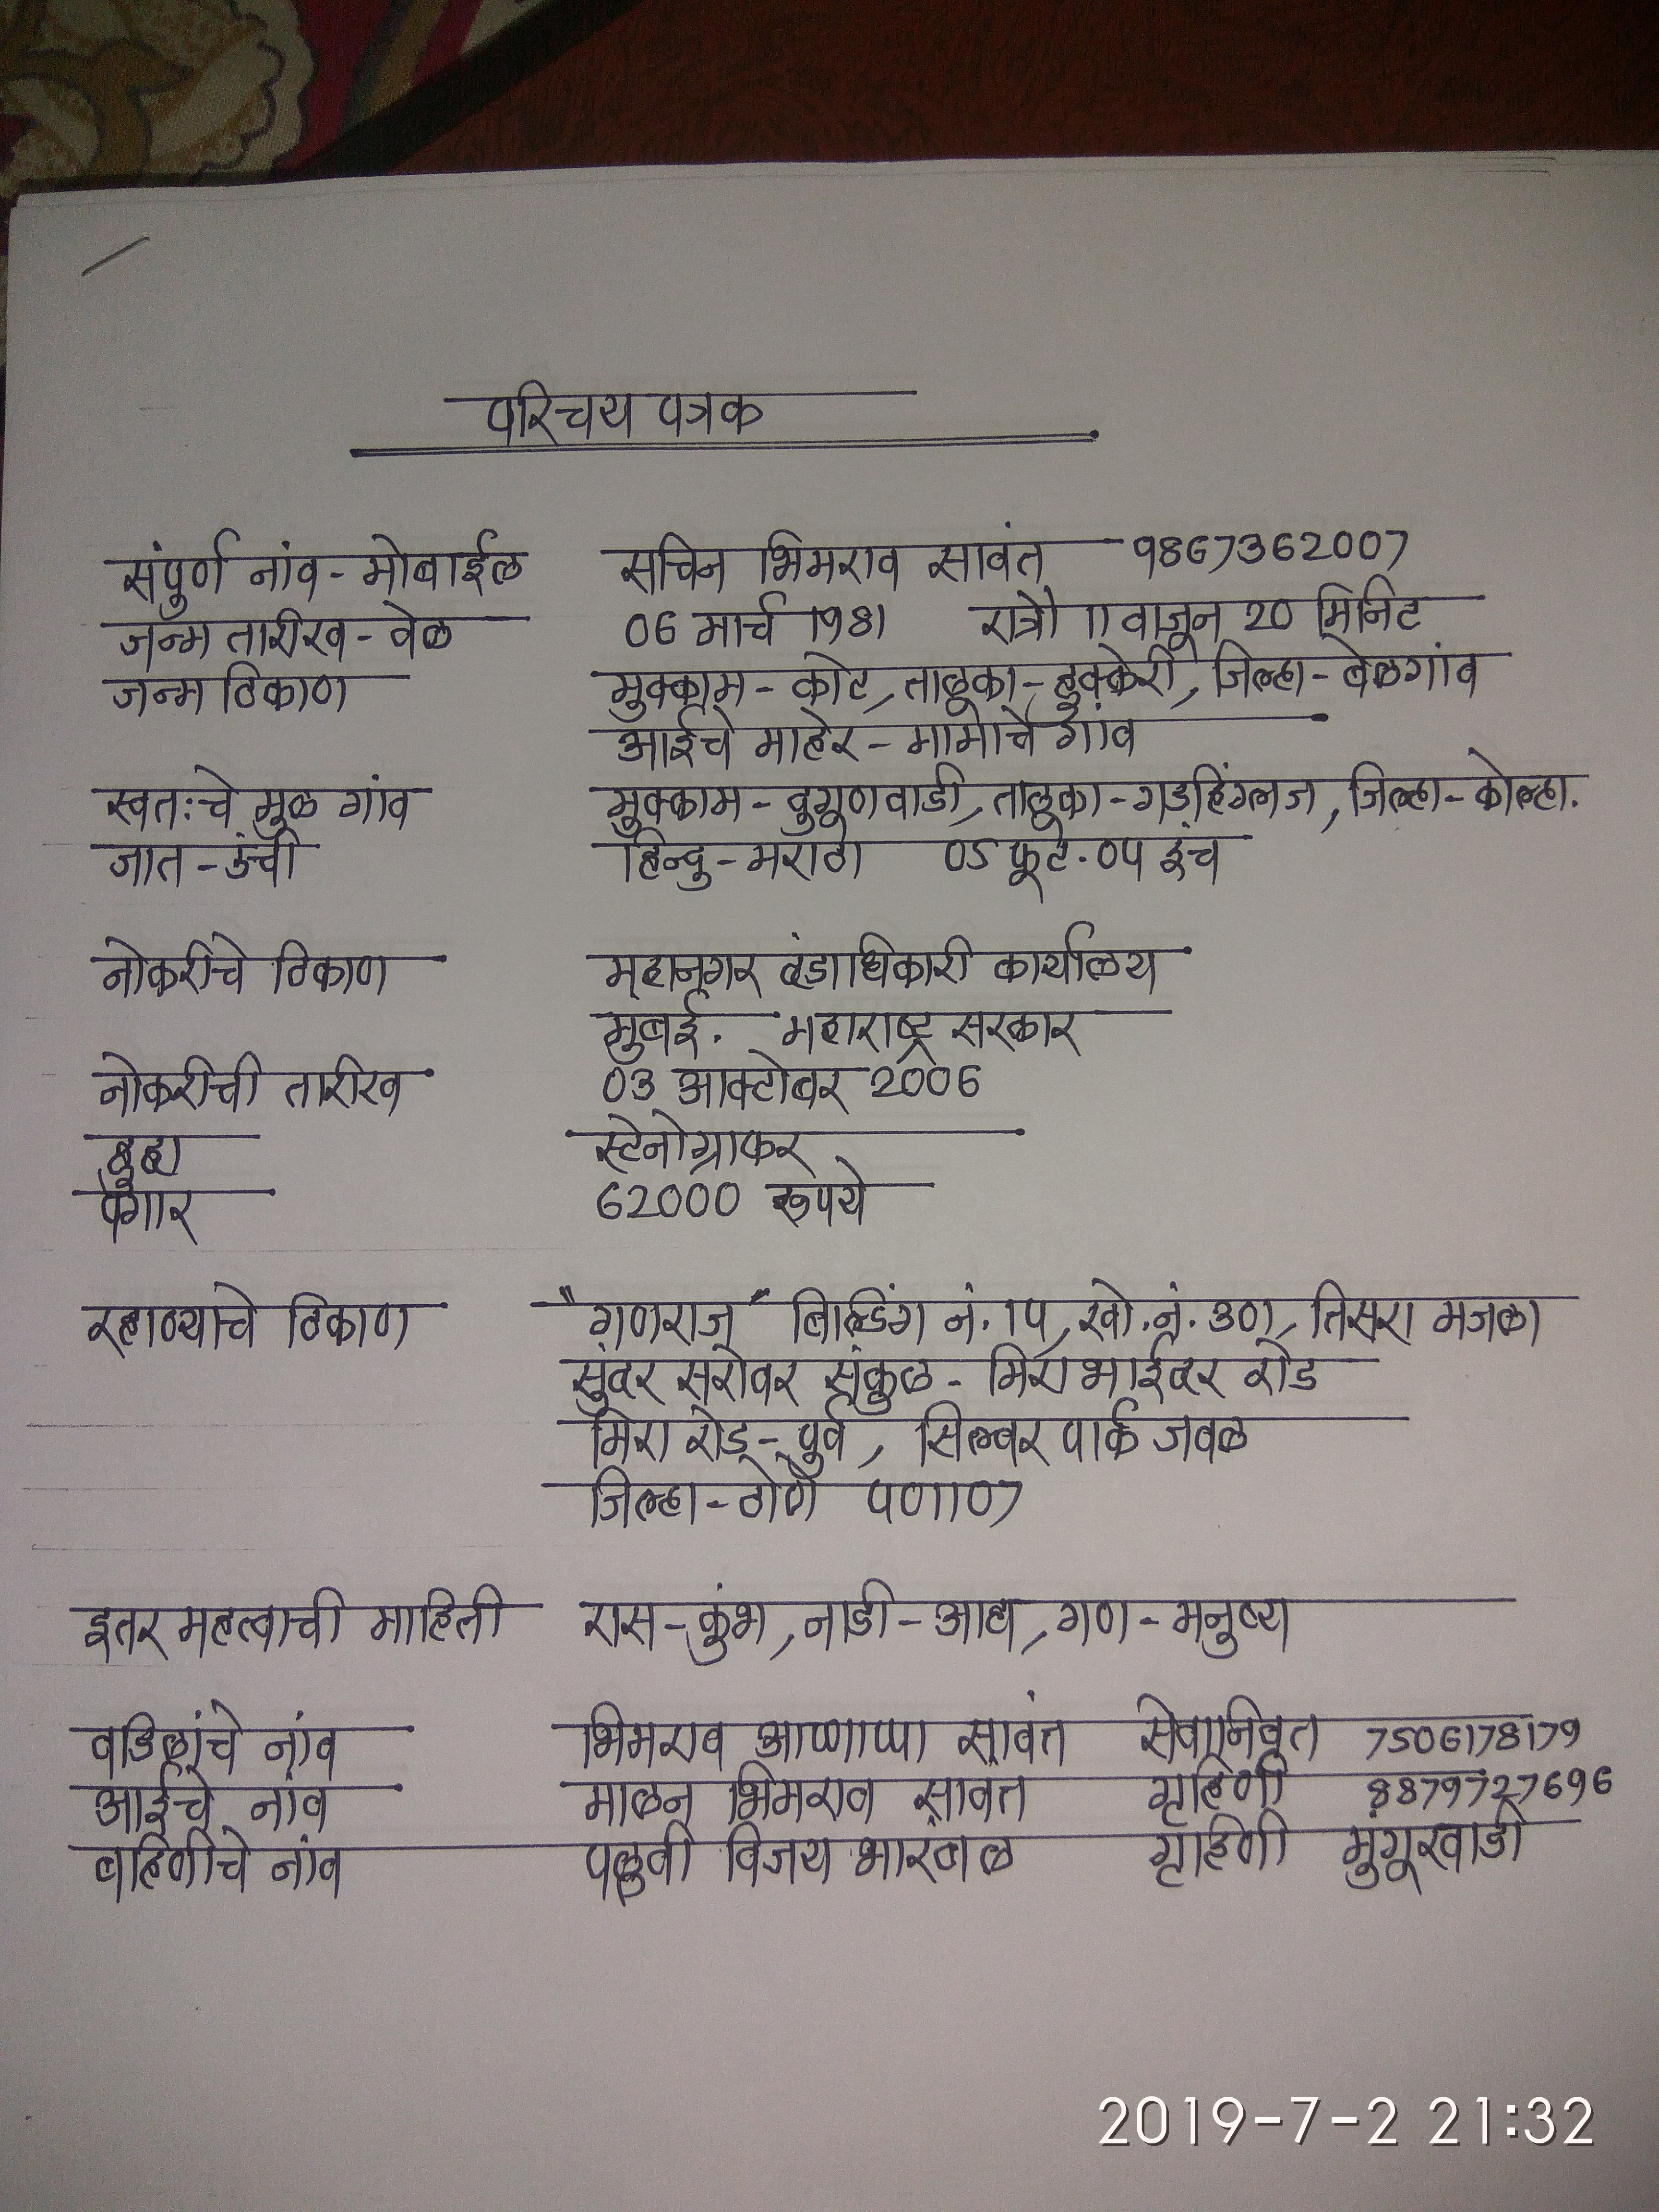 परिचय पत्रक
संपुर्ण नांव - मोबाईल सचिन भिमराव सावंत 9867362007
जन्म तारीख - वेळ 06 मार्च 1981 रात्रौ 11 वाजून 20 मिनिट
जन्म ठिकाण मुक्काम - कोट, तालूका - हुक्केरी, जिल्हा - बेळगांव
आईचे माहेर - मामाचे गांव
स्वतःचे मूळ गांव मुक्काम - वुगूणवाडी, तालूका - गडहिंग्लज, जिल्हा - कोल्हा.
जात - उंची हिन्दु - मराठा 05 फूट. 04 इंच
नोकरीचे ठिकाण महानगर दंडाधिकारी कार्यालय
मुंबई. महाराष्ट्र सरकार
नोकरीची तारीख 03 आक्टोबर 2006
हुद्दा स्टेनोग्राफर
पगार 62000 रुपये
रहाण्याचे ठिकाण "गणराज" बिल्डिंग नं. 14, खो. नं. 301, तिसरा मजला
सुंदर सरोवर संकुळ - मिरा भाईंदर रोड
मिरा रोड - पुर्व, सिल्वर पार्क जवळ
जिल्हा - ठाणे 401107
इतर महत्वाची माहिती रास - कुंभ, नाडी - आद्य, गण - मनुष्य
वडिलांचे नांव भिमराव आप्पाप्पा सावंत सेवानिवृत 7506178179
आईचे नांव मालन भिमराव सावंत गृहिणी 8879727696
बहिणीचे नांव पल्लवी विजय भारंबळ गृहिणी मुंगूरवाडी
2019-7-2 21:32